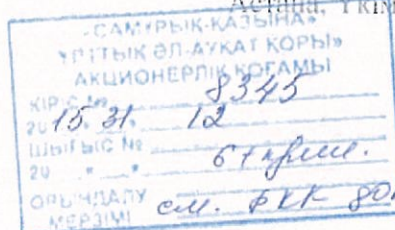 Астана, Үкім
«САМҰРЫҚ-ҚАЗЫНА»
ҰЛТТЫҚ ӘЛ-АУҚАТ ҚОРЫ»
АКЦИОНЕРЛІК ҚОҒАМЫ
КІРІС № 8345
20 15 31 12
ШЫҒЫС № 6+прил.
20
ОРЫНДАЛУ
МЕРЗІМІ см. ФКК 80